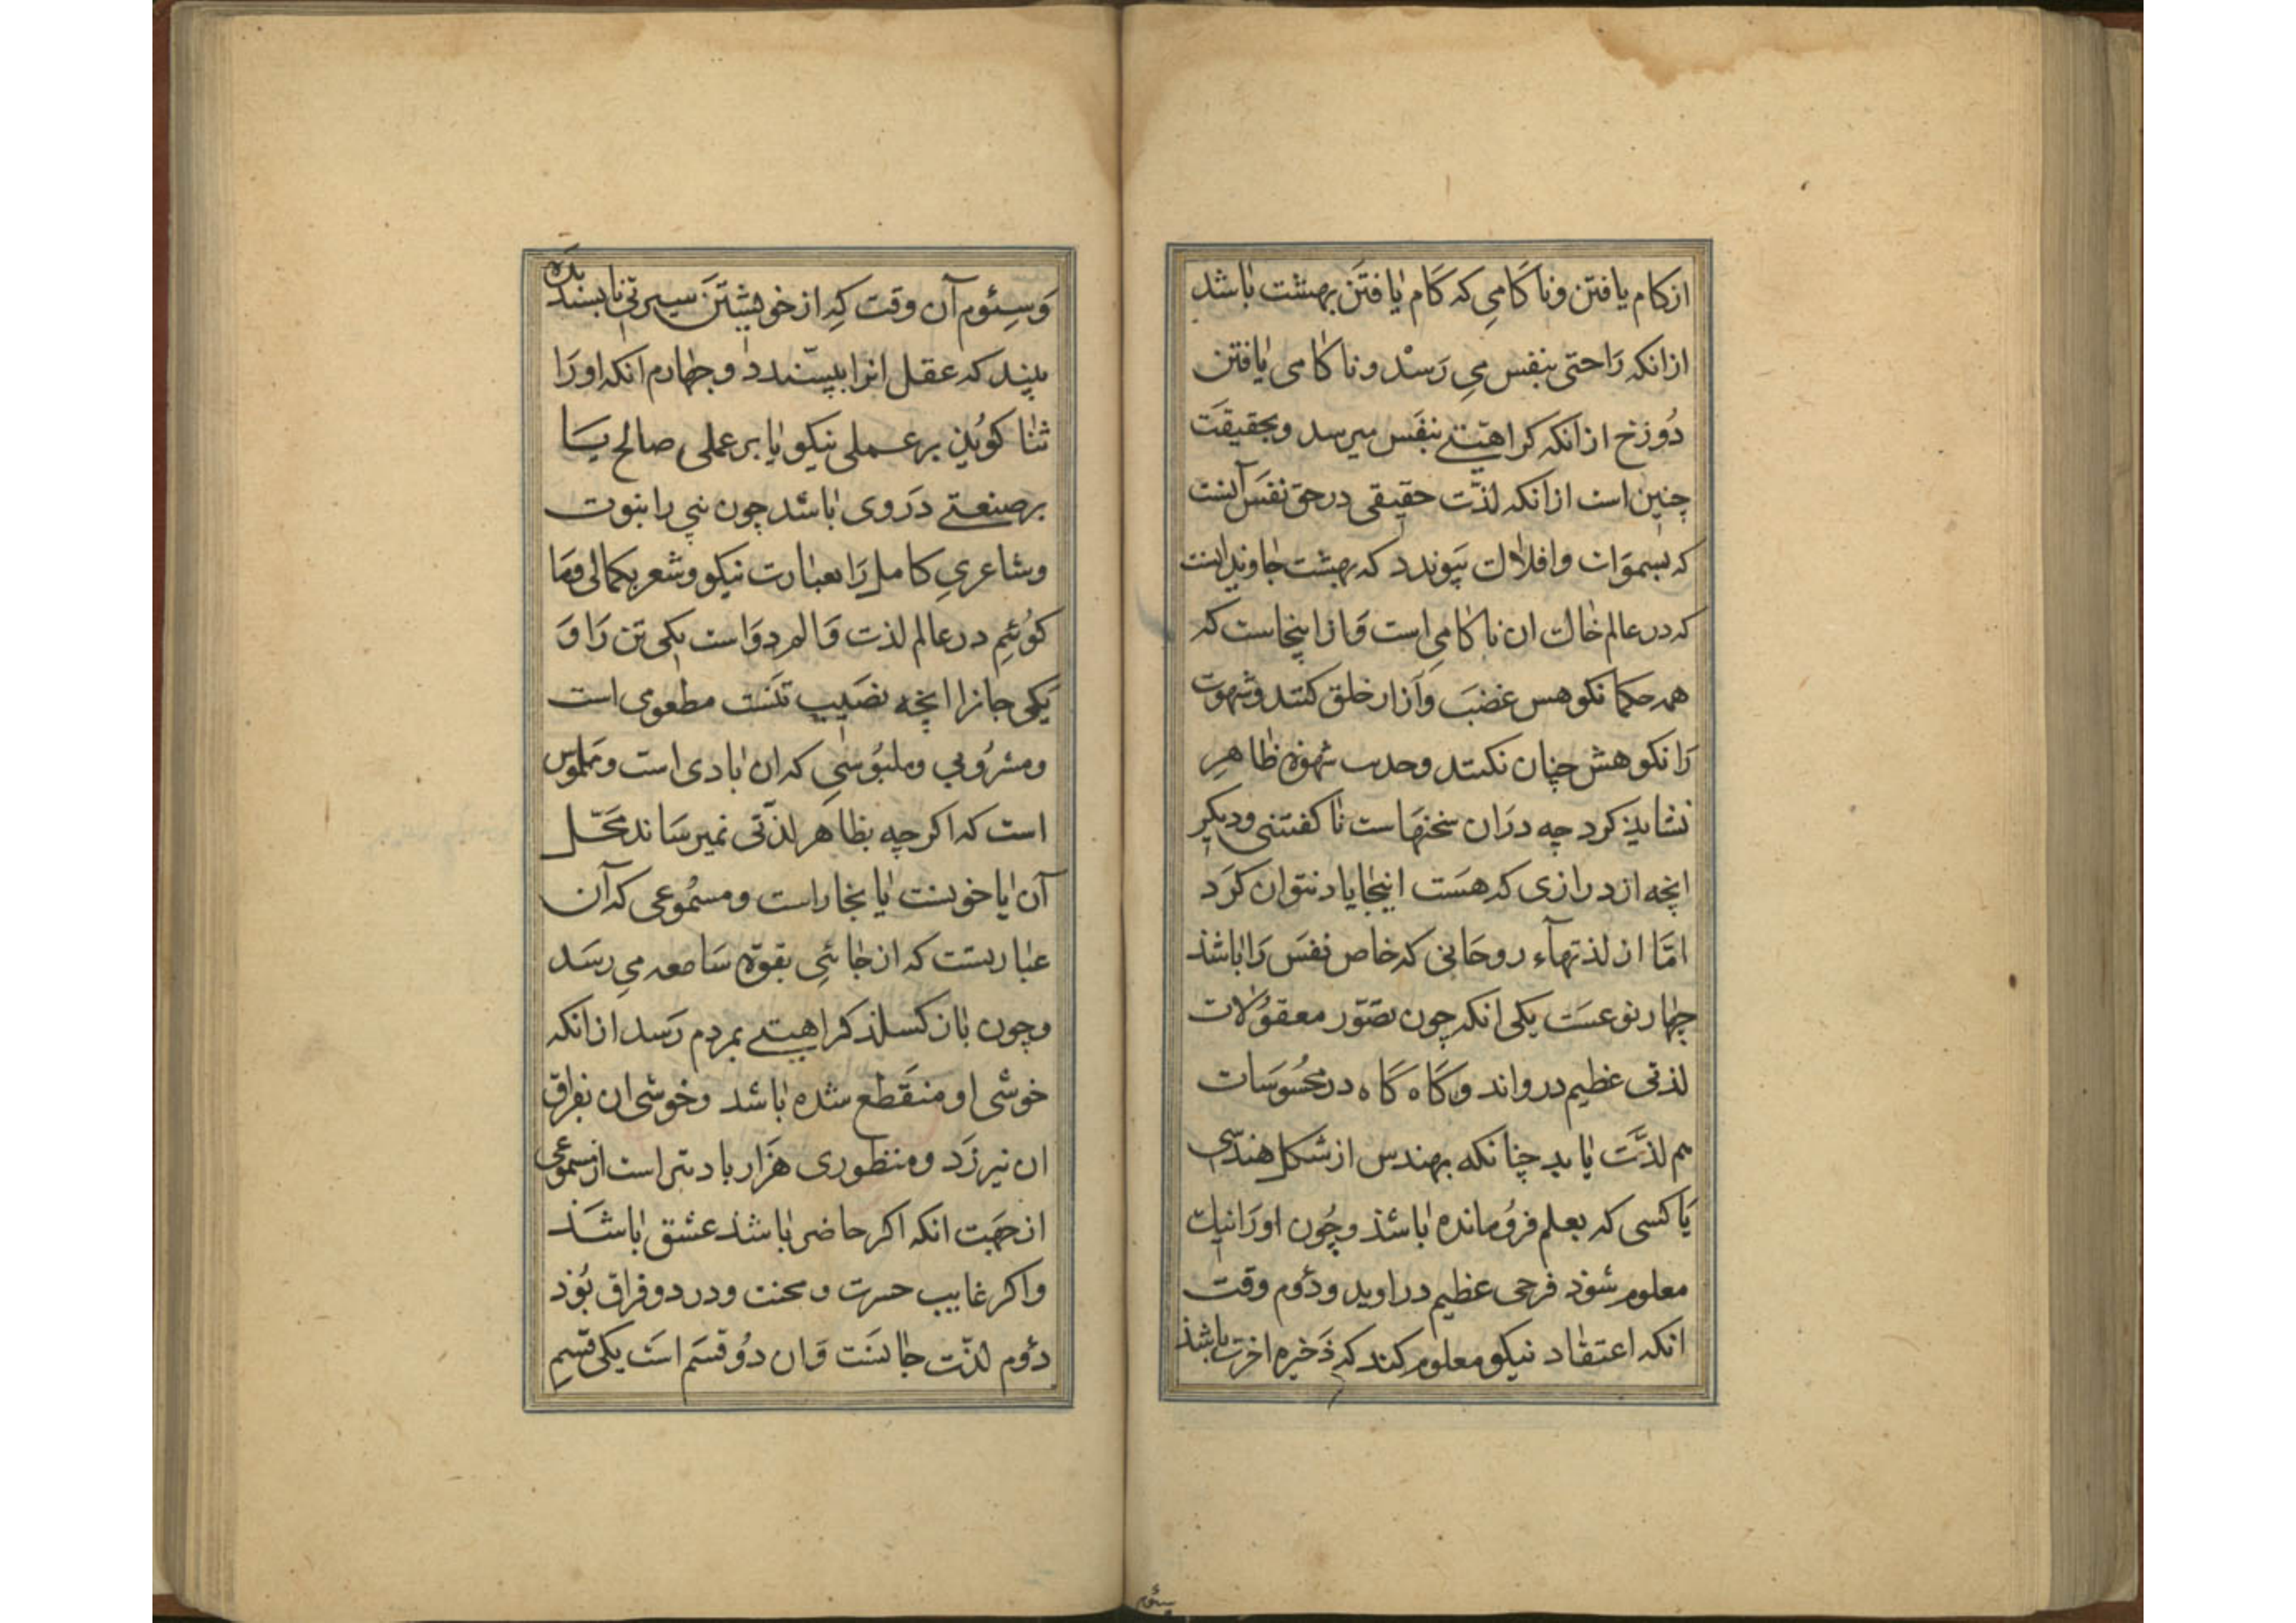 ازکام یافتن وناکامی که کام یافتن بهشت باشد
ازانکه راحتی بنفس می رسد و ناکامی یافتن
دوزخ ازانکه کراهیتی بنفس میرسد وبحقیقت
چنین است ازانکه لذّت حقیقی درحق نفس آنست
که بسموات وافلاك پیوندد که بهشت جاوید اینست
که در عالم خاك ان ناکامی است وازاینجاست که
همه حکما نکوهس غضب وآزار خلق کنند وشهوت
را نکوهش چنان نکنند وحدیث شهوة ظاهر
نشاید کرد چه دران سخنهاست ناکفتنی ودیکر
انچه از درازی که هست اینجا یاد نتوان کرد
امّا از لذتهاء روحانی که خاص نفس را باشذ
چهار نوعست یکی انکه چون تصوّر معقولات
لذتی عظیم درواند وکاه کاه در محسوسات
هم لذّت یابد چنانکه مهندس از شکل هندسی
یا کسی که بعلم فرومانده باشذ وچون اورا نیك
معلوم شوذ فرحی عظیم دراوید ودوم وقت
انکه اعتقاد نیکو معلوم کند که ذخیره اخرت باشذ
سئوم
وسئوم آن وقت که از خویشتن سیرتی ناپسندیده
بیند که عقل انرا بپسندد وچهارم انکه اورا
ثنا کویند برعملی نیکو یا برعملی صالح یا
برصنعتی دروی باشد چون نبی را بنبوت
وشاعری کامل را بعبارت نیکو وشعر بکمالی وما
کوئیم در عالم لذت والم دواست یکی تن را و
یکی جانرا انچه نصیب تنست مطعومی است
ومشروبی وملبوسی که ان بادی است وملموس
است که اکرچه بظاهر لذّتی نمیرساند محّل
آن یا خونست یا بخاراست ومسموعی که آن
عبارتست که از جائی بقوة سامعه می رسد
وچون باز کسلد کراهیتی بمردم رسد ازانکه
خوشی او منقطع شده باشد وخوشی ان بفراق
ان نیرزد ومنظوری هزار بار بتر است از مسموعی
از جهت انکه اکر حاضر باشد عشق باشذ
واکر غایب حسرت ومحنت ودرد وفراق بوذ
دوم لذّت جانست وان دو قسم است یکی قسم